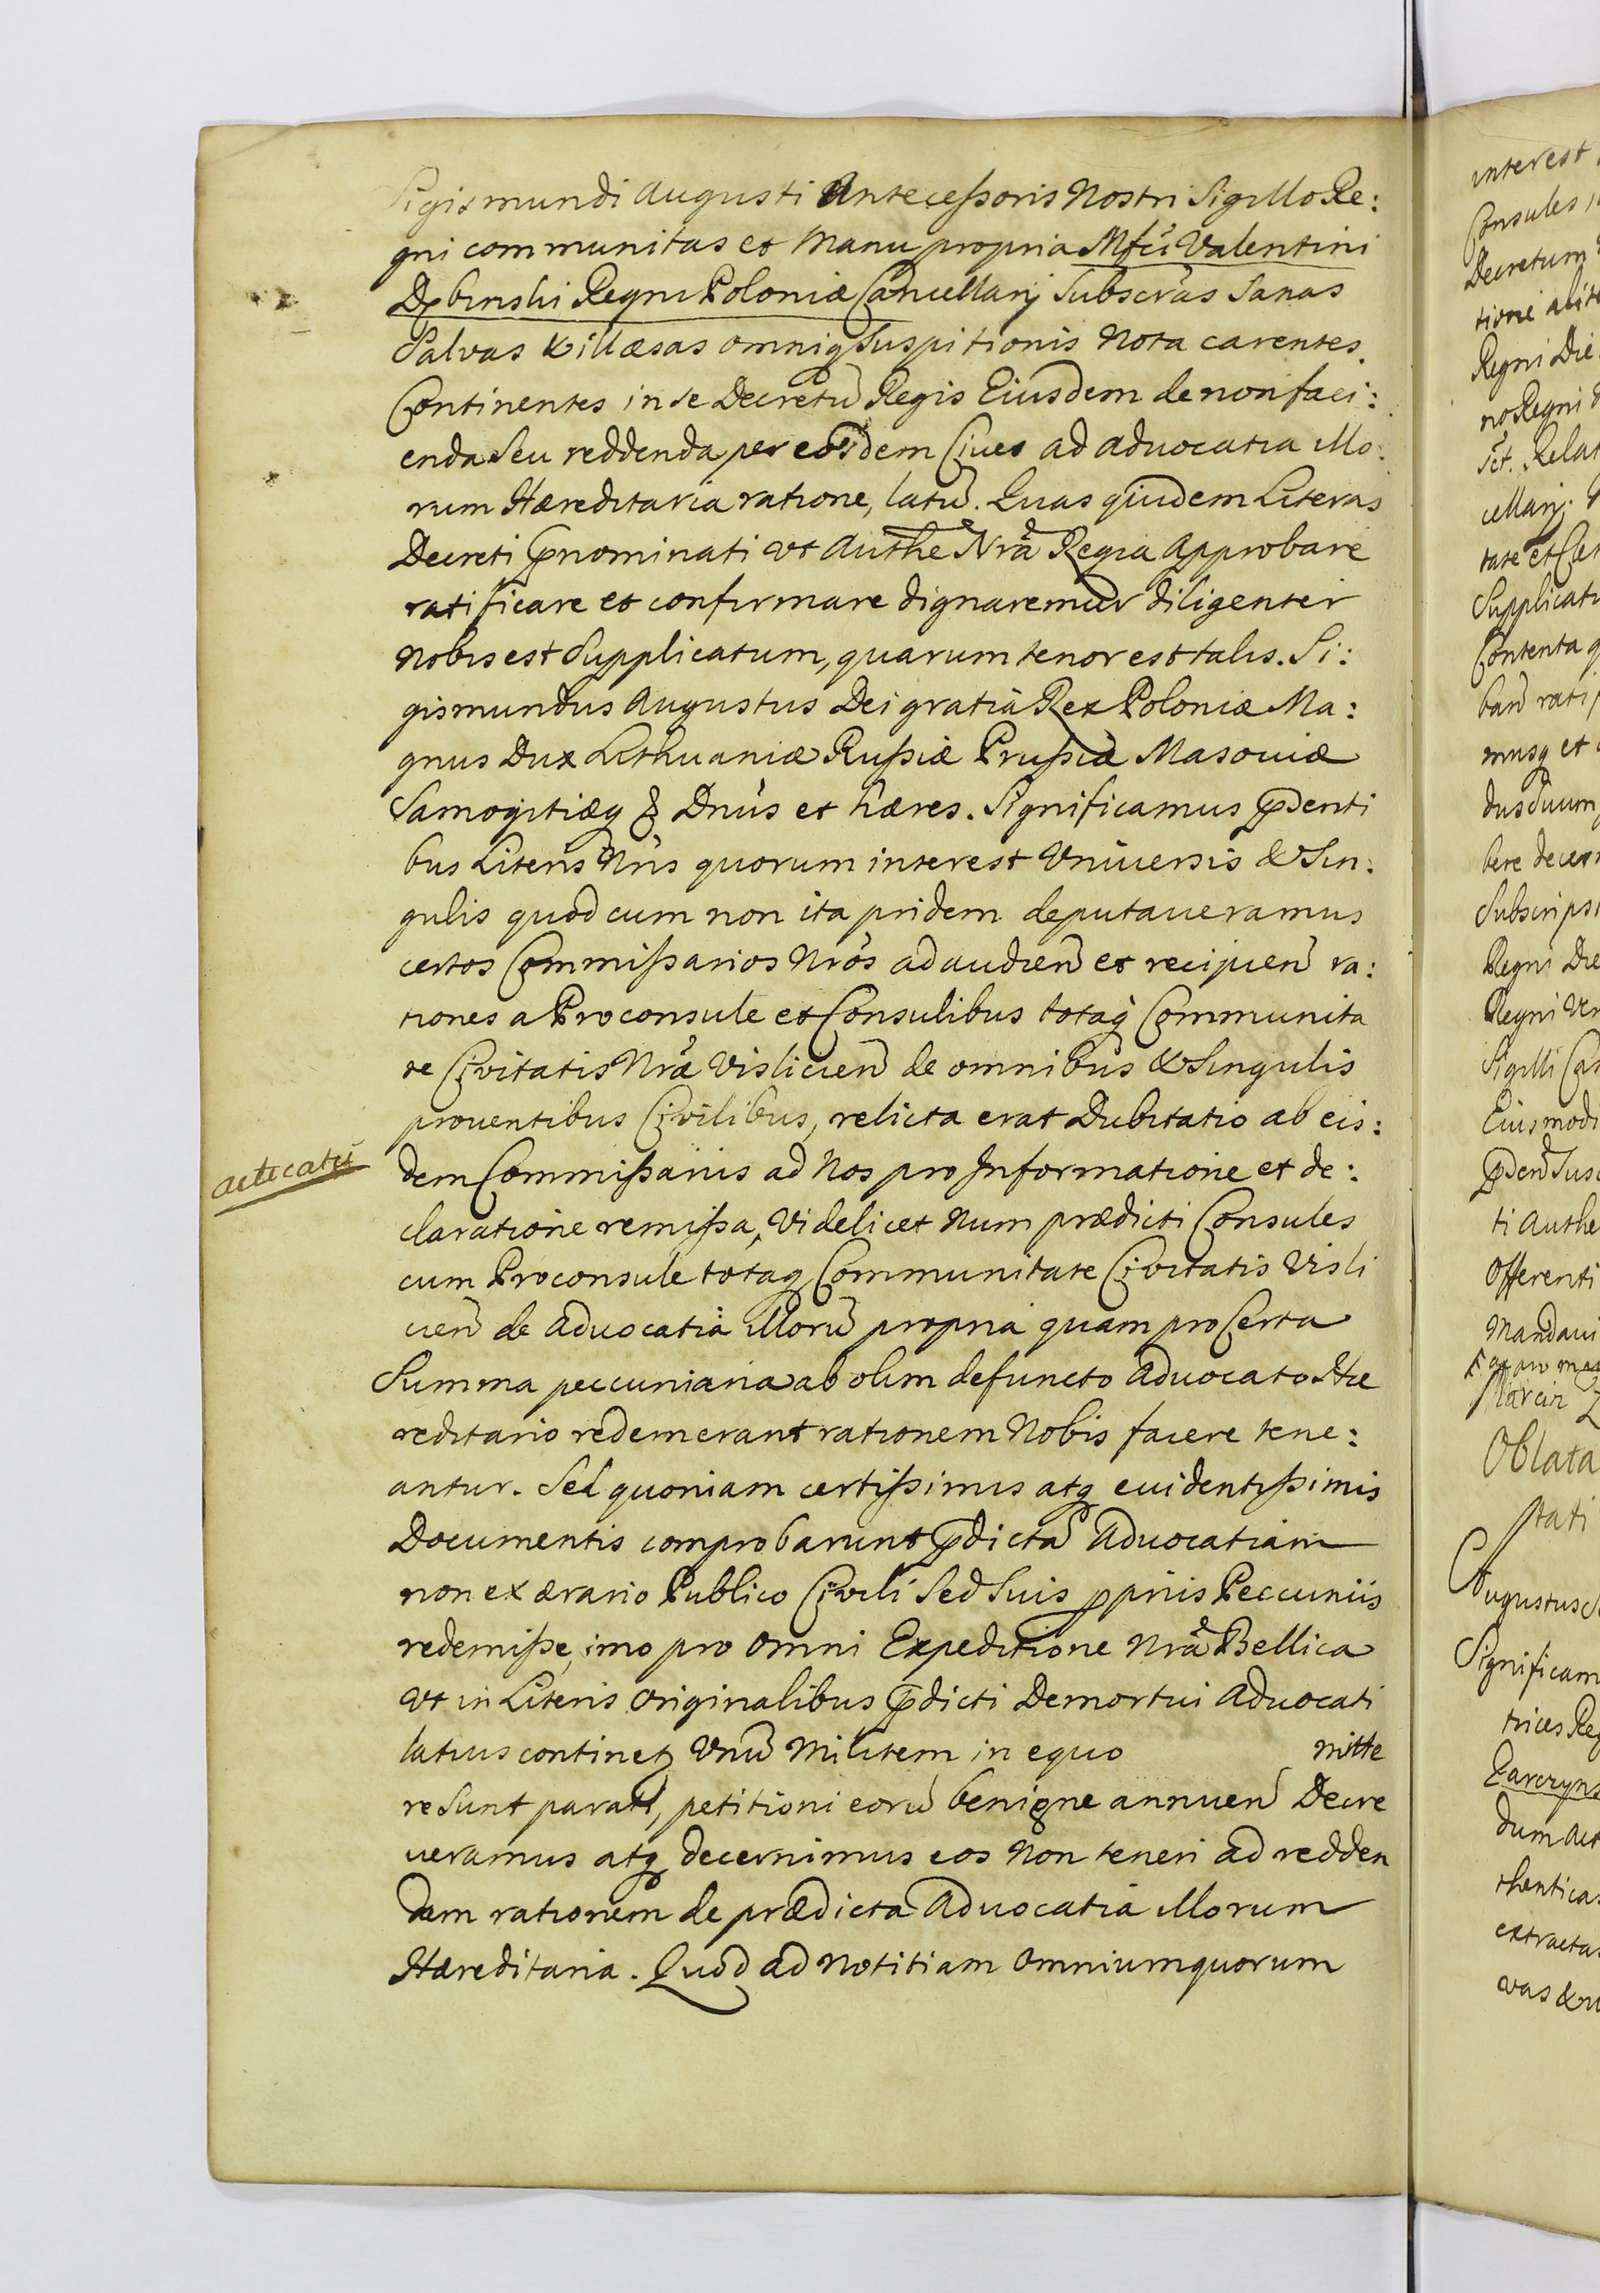 Sigismundi Augusti Antecessoris Nostri Sigillo Re:
gni communitas et Manu propria Mfci Valentini
Dębinski Regni Poloniæ Cancellarij Subscras Sanas
Salvas & illæsas omniq Suspitionis Nota carentes.
Continentes in se Decretū Regis Eiusdem de non faci:
enda Seu reddenda per eosdem Ciues ad aduocatia illo:
rum Hæreditaria ratione, latū. Quas quidem Literas
Decreti p̃nominati vt Authe Nrã Regia Approbare
ratificare et confirmare dignaremur diligenter
Nobis est Supplicatum, quarum tenor est talis. Si:
gismundus Augustus Dei gratia Rex Poloniæ Ma:
gnus Dux Lithuaniæ Russiæ Prussiæ Masouiæ
Samogitiæq & Dnus et hæres. Significamus p̃senti
bus Literis Nris quorum interest Vniuersis & Sin:
gulis quod cum non ita pridem deputaueramus
certos Commissarios Nros ad audien̄ et recipien̄ ra:
tiones a Proconsule et Consulibus totaq Communita
te Civitatis Nræ Vislicien̄ de omnibus & Singulis
prouentibus Civilibus, relicta erat Dubitatio ab eis:
acticatū
dem Commissariis ad Nos pro Informatione et de:
claratione remissa, Videlicet Num prædicti Consules
cum Proconsule totaq Communitate Civitatis Visli
cien̄ de Aduocatia illorū propria quam pro Certa
Summa peccuniaria ab olim defuncto Aduocato Hæ
reditario redemerant rationem Nobis facere tene:
antur. Sed quoniam certissimis atq euidentissimis
Documentis comprobarunt p̃dictā Aduocatiam
non ex ærario Publico Civili Sed Suis ppriis Peccuniis
redemisse, imo pro omni Expeditione Nrã Bellica
Vt in Literis Originalibus p̃dicti Demortui Aduocati
latius continetʒ Vnū Militem in equo mitte
re Sunt parati, petitioni eorū benigne annuen̄ Decre
ueramus atq decernimus eos Non teneri ad redden
dam rationem de prædicta Aduocatia illorum
Hæreditaria. Quod ad Notitiam Omnium quorum
interest
Consules
Decretum
tione
Regni
no Regni
Relat
cellarij.
tate et
Supplicati
Contenta
musq et
Subscripsi
Regni
Regni
Sigilli
Eiusmodi
ti Authe
Offerenti
Mandaui
Oblata
Augustus
Significam
trices Reg
dum
thentica
extracta
vas &